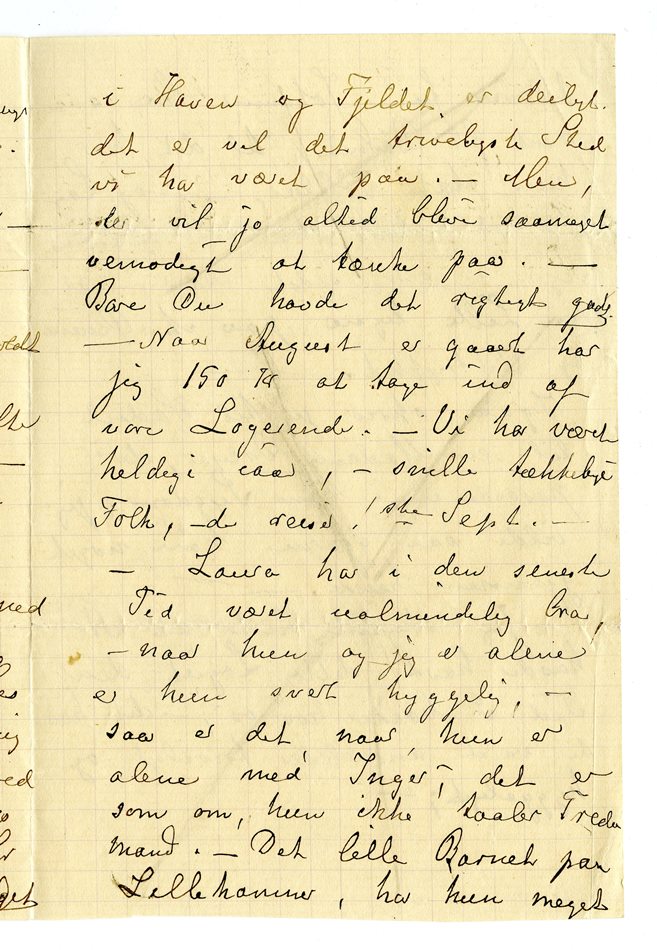 i Haven og Fjeldet er deiligt.
det er vel det triveligste Sted
vi ha været paa. — Men,
der vil jo altid blive saameget
vemodigt at tænke paa. —
Bare Du havde det rigtigt godt.
— Naar August er gaaet har
jeg 150 Kr at tage ind af
vore Logerende. — Vi ha været
heldige iaar, — snille tækkelige
Folk, — de reiser 1ste Sept. —
— Laura har i den seneste
Tid været ualmindelig bra,
— naar hun og jeg er alene
er hun svært hyggelig, —
saa er det, naar, hun er
alene med Inger, det er
som om, hun ikke taaler Tredie
mand. — Det lille Barnet paa
Lillehammer, har hun meget